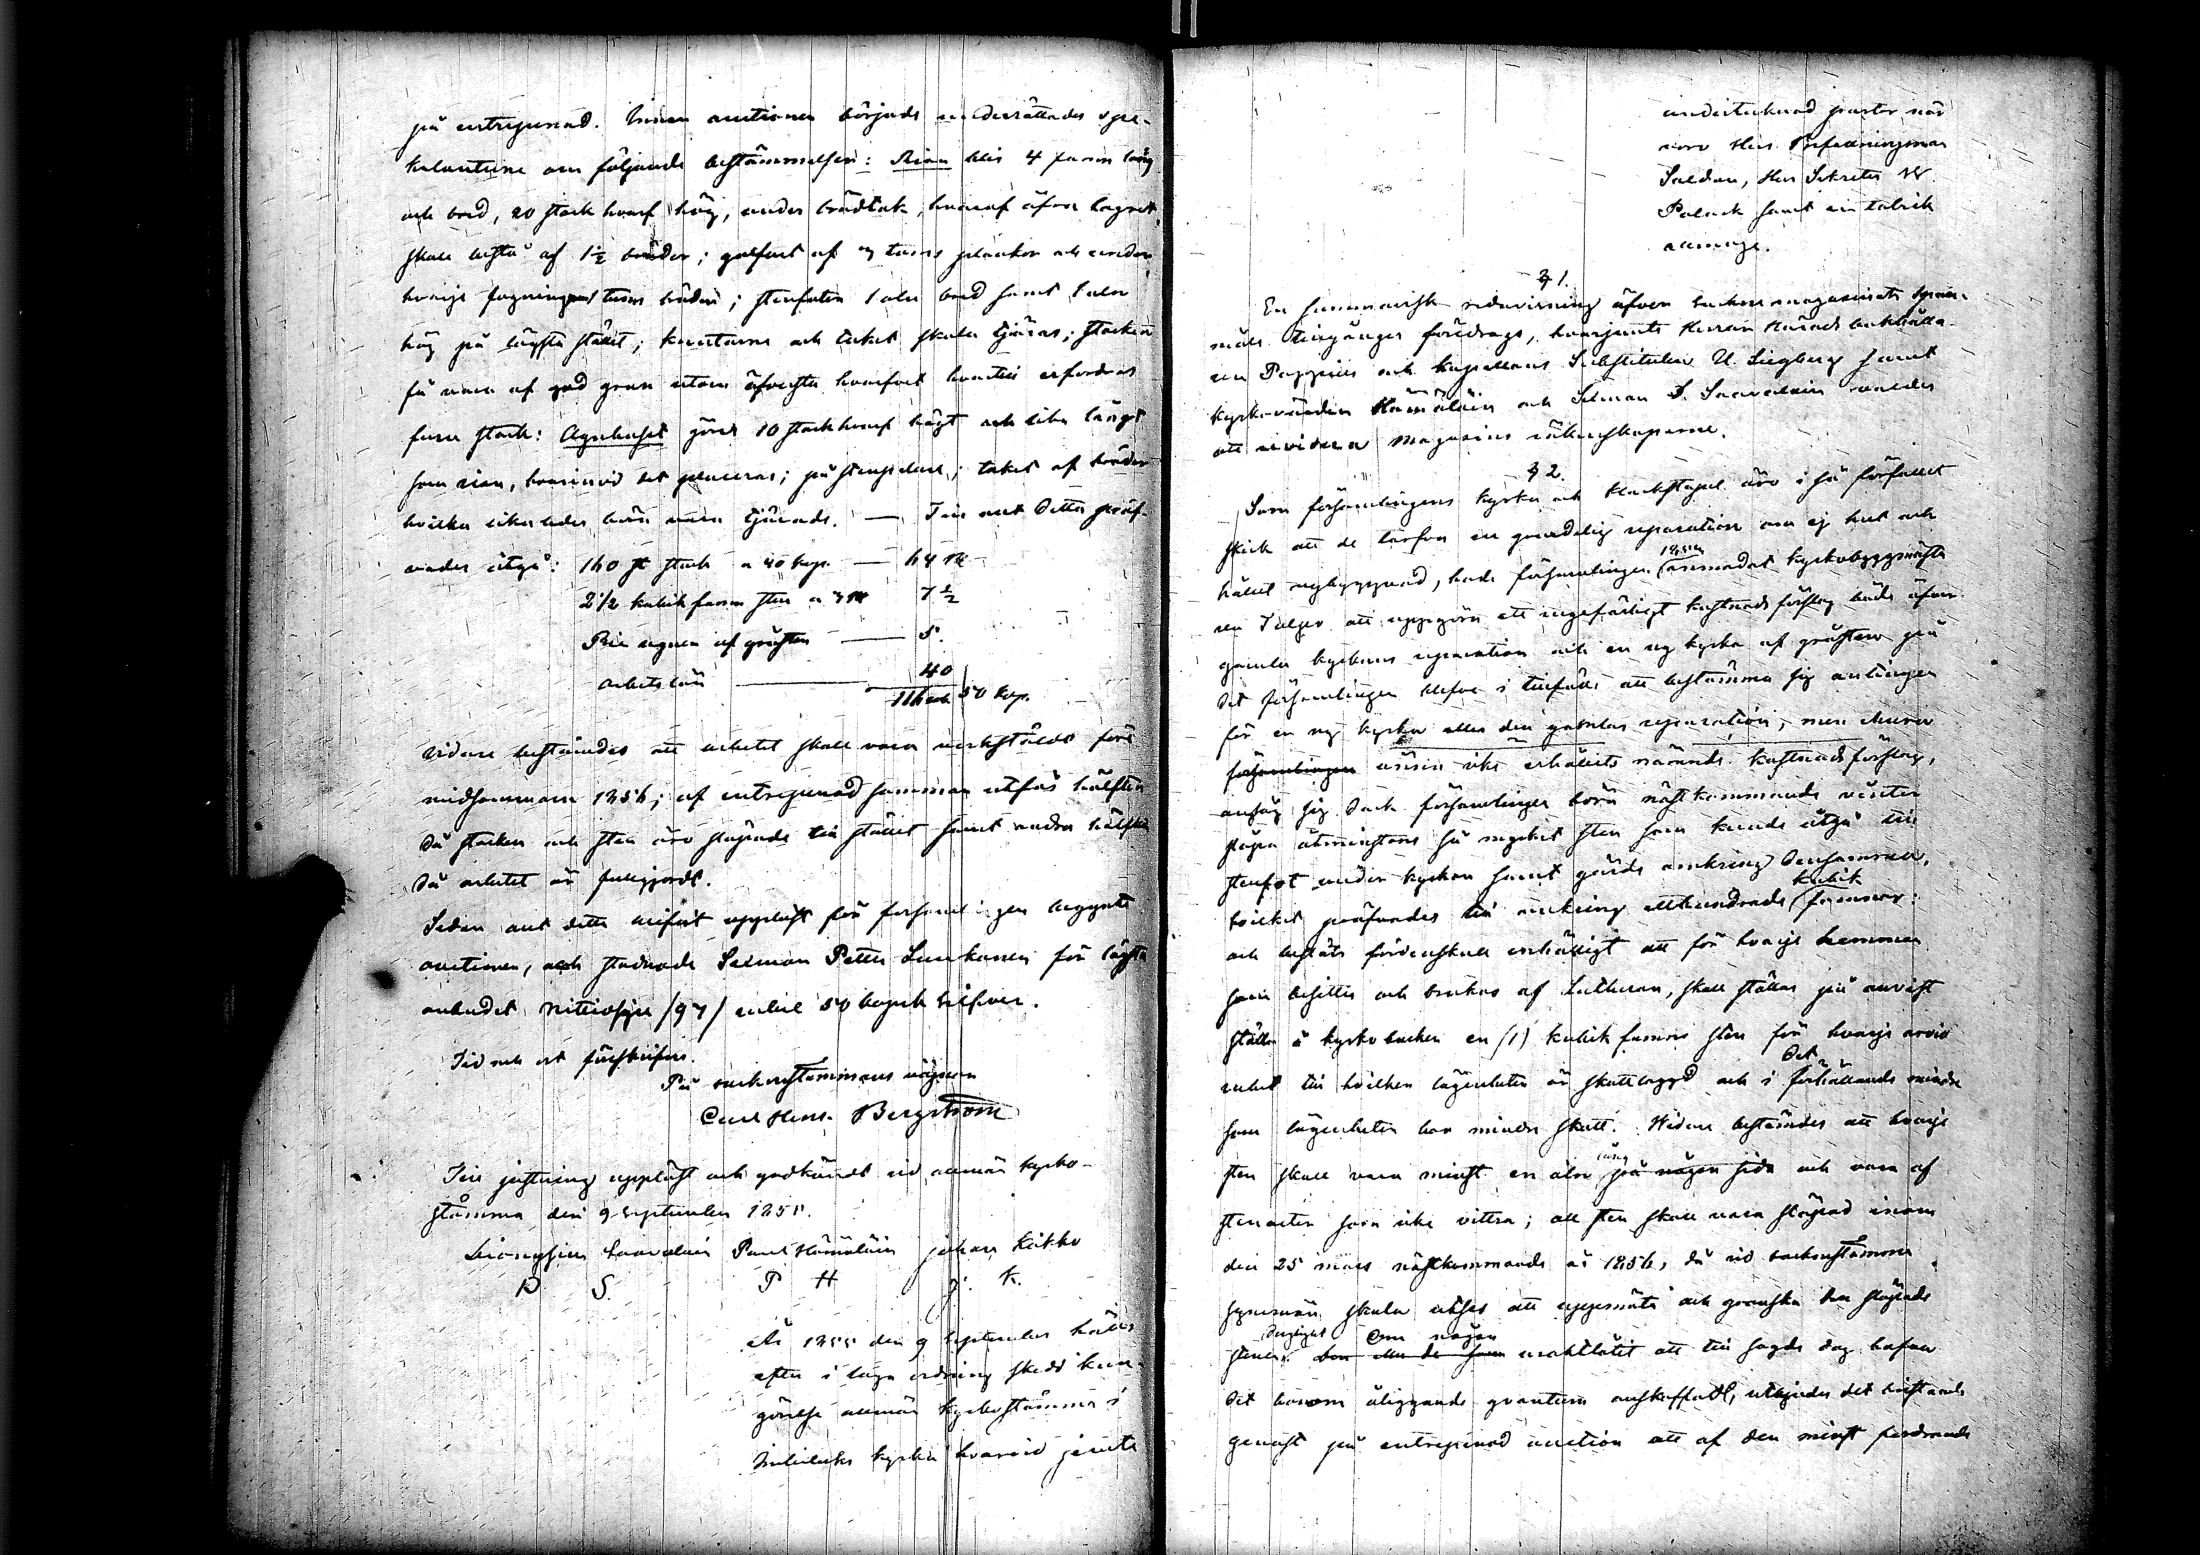 på entreprenad. Innan auctionen började underrättades spe-
kulanterne om följande bestämmelser: Rian blir 4 famn lång
och bred, 20 stock hvarf hög, under brädtak, hvaraf äfven lagret
skall bestå af 1½ bräder; golfvet af 3 tums plankor och under
hvarje fogning tums bräder; stenfoten 1 aln bred samt 1 aln
hög på lägsta stället; knutarne och taket skola tjäras; stocken
få vara af god gran utom öfversta hvarfvet hvartill erfordras
furu stock: Agnhuset göres 10 stockhvarf högt och lika långt
som rian, hvarinvid det placeras; på stenpelare; taket af bräder
hvilka likaledes böra vara tjärade. — Till allt detta pröf-
vades åtgå: 160 st stock a 40 kop. — 64 R
2½ kubik famn sten a 3 R 7½
Rie ugnen af gråsten — 5.
arbets lön — 40
116 rub 50 kop.
vidare bestämdes att arbetet skall vara verkstäldt före
midsommaren 1856; af entreprenad summan utfås hälften
då stocken och sten äro släpade till stället samt andra hälften
då arbetet är fullgjordt.
Sedan allt detta blifvit uppläst för församlingen begynte
auctionen, och stadnade Seiman Petter Luukanen för lägsta
anbudet nittiosju /97/ rubel 50 kopek silfver.
Tid och ort förskrifne.
På sockenstämmans vägnar
Carl Henr. Bergström
Till justering uppläst och godkändt vid allmän kyrko-
stämma den 9 September 1855.
Dionysius Saarelain Paul Hämäläin Johan Kikko
D S. P H J. K.
År 1855 den 9 September hölls
efter i laga ordning skedd kun-
görelse allmän kyrkostämma i
kyrka hvarvid jemte
undertecknad pastor när
voro Herr Befallningsman
Saldan, Herr Sekreter W.
Palack samt en talrik
allmoge.
§ 1.
En summarisk redovisning öfver sockne magasinets spann-
måls tillgångar föredrogs, hvarjemte Herrar Härads bokhålla-
ren Poppius och kapellans Substituten U. Siegberg samt
kyrkovärden Hämäläin och Seiman D. Saarelain valdes
att revidera Magasins räkenskaperne.
§ 2.
Som församlingens kyrka och klockstapel äro i så förfallet
skick att de tarfva en grundelig reparation om ej helt och
hållet nybyggnad, hade församlingen anmodat kyrkobyggmästa
ren Tolpo att uppgöra ett ungefärligt kostnads förslag både öfver
gamla kyrkans reparation och en ny kyrka af gråsten på
det församlingen blefve i tillfälle att bestämma sig antingen
för en ny kyrka eller den gamlas reparation; men ehuru
församlingen ännu icke erhållit nämnde kostnads förslag,
ansåg sig dock församlingen böra nästkommande vinter
släpa åtminstone så mycket sten som kunde åtgå till
stenfot under kyrkan samt gärde omkring densamma,
kubik
hvilket pröfvades till omkring etthundrade famnar:
och beslöts fördenskull enhälligt att för hvarje hemman
som besittes och brukas af Lutheran, skall ställas på anvist
ställe å kyrko backen en /1/ kubik famns sten för hvarje arvio
det
rubel till hvilken lägenheten är skattlagd och i förhållande mindre
som lägenheten har mindre skatt. Widare bestämdes att hvarje
lång
sten skall vara minst en aln på någon sida och vara af
stenarter som icke vittra; all sten skall vara släpad inom
den 25 mars nästkommande år 1856, då vid sockenstämma
synemän skola utses att uppmäta och granska den släpade
Om någon
stenen. den eller de som uraktlåtit att till sagde dag hafva
det honom åliggande qvantum anskaffadt, utbjudes det bristande
genast på entreprenad auction att af den minst fordrande